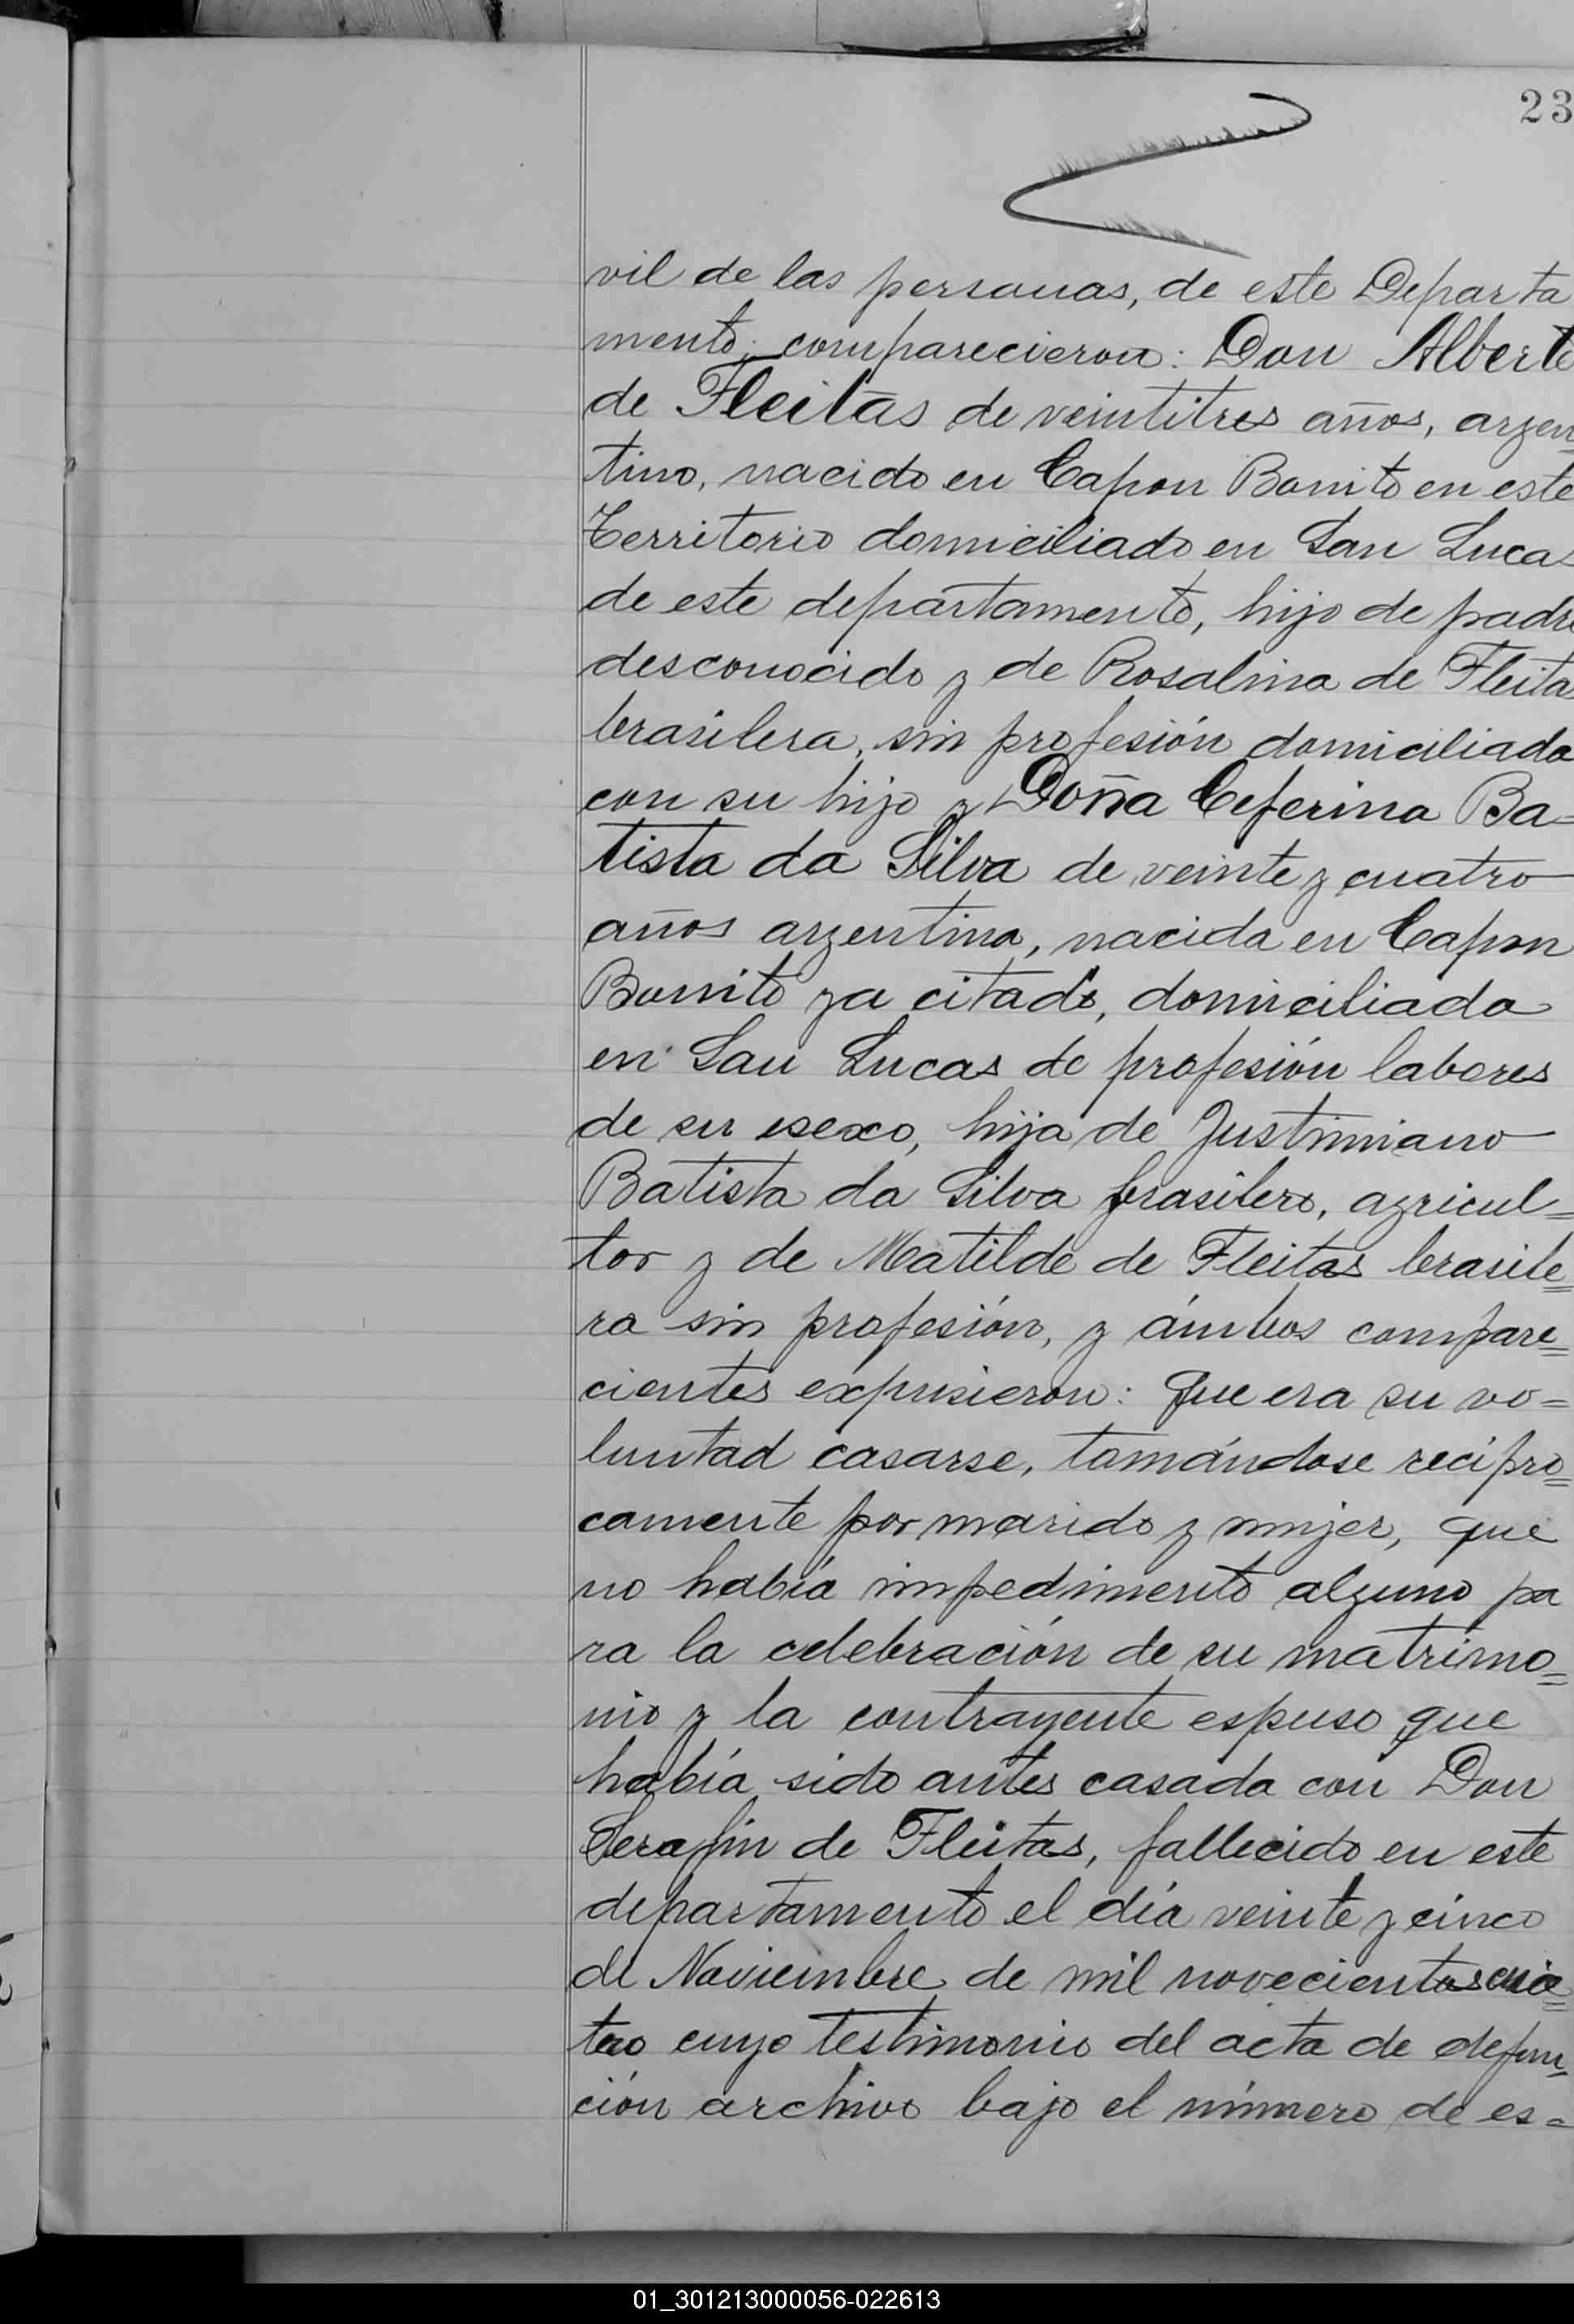 23
vil de las personas, de este Departa
mento; comparecieron: Don Alberto
de Fleitas de veintitres años, argen
tino, nacido en Capon Bonito en este
Territorio domiciliado en San Lucas
de este departamento, hijo de padre
desconocido y de Rosalina de Fleitas
brasilera, sin profesión domiciliada
con su hijo y Doña Ceferina Ba=
tista da Silva de veinte y cuatro
años argentina, nacida en Capon
Bonito ya citado, domiciliada
en San Lucas de profesión labores
de su sexo, hija de Justiniano
Batista da Silva brasilero, agricul=
tor y de Matilde de Fleitas brasile=
ra sin profesión, y ámbos compare=
cientes expusieron: Que era su vo=
luntad casarse, tomándose recipro=
camente por marido y mujer, que
no había impedimento alguno pa
ra la celebración de su matrimo=
nio y la contrayente espuso que
había sido antes casada con Don
Serafin de Fleitas, fallecido en este
departamento el día veinte y cinco
de Noviembre de mil novecientos cua=
tro cuyo testimonio del acta de defun
ción archivo bajo el número de es=
01_301213000056-022613